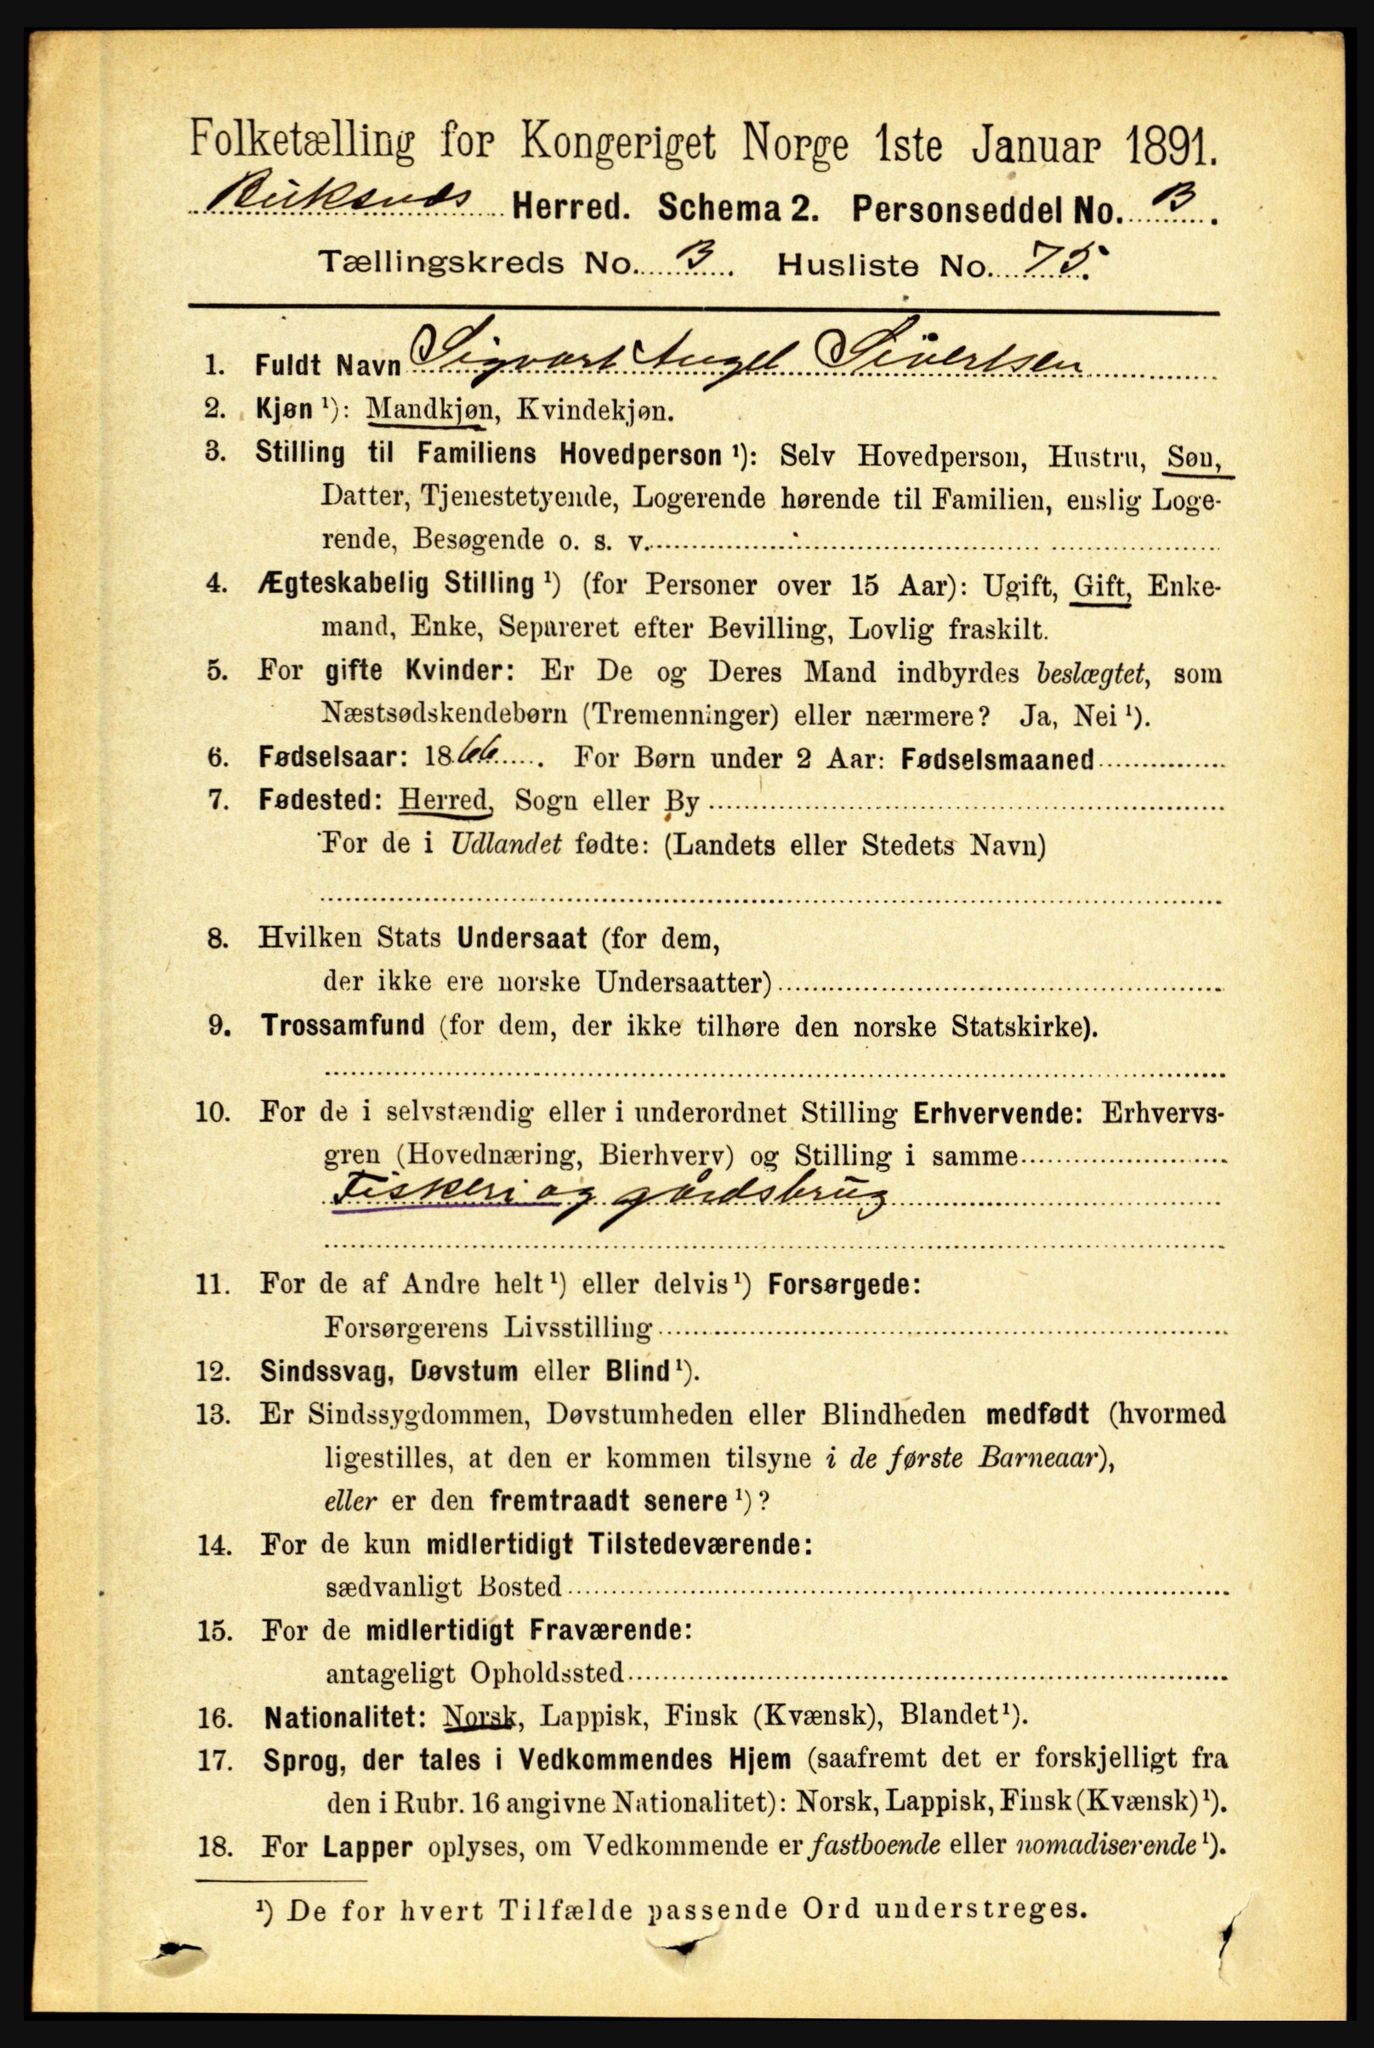 Folketælling for Kongeriget Norge 1ste Januar 1891.
Buksnæs Herred. Schema 2. Personseddel No. 3.
Tællingskreds No. 3. Husliste No. 75.
1. Fuldt Navn Sigvart Angel Sivertsen
2. Kjøn ¹): Mandkjøn, Kvindekjøn.
3. Stilling til Familiens Hovedperson ¹): Selv Hovedperson, Hustru, Søn,
Datter, Tjenestetyende, Logerende hørende til Familien, enslig Loge-
rende, Besøgende o. s. v.
4. Ægteskabelig Stilling ¹) (for Personer over 15 Aar): Ugift, Gift, Enke-
mand, Enke, Separeret efter Bevilling, Lovlig fraskilt.
5. For gifte Kvinder: Er De og Deres Mand indbyrdes beslægtet, som
Næstsødskendebørn (Tremenninger) eller nærmere? Ja, Nei ¹).
6. Fødselsaar: 1866. For Børn under 2 Aar: Fødselsmaaned
7. Fødested: Herred, Sogn eller By
For de i Udlandet fødte: (Landets eller Stedets Navn)
8. Hvilken Stats Undersaat (for dem,
der ikke ere norske Undersaatter)
9. Trossamfund (for dem, der ikke tilhøre den norske Statskirke).
10. For de i selvstændig eller i underordnet Stilling Erhvervende: Erhvervs-
gren (Hovednæring, Bierhverv) og Stilling i samme
Fiskeri og gårdsbrug
11. For de af Andre helt ¹) eller delvis ¹) Forsørgede:
Forsørgerens Livsstilling
12. Sindssvag, Døvstum eller Blind ¹).
13. Er Sindssygdommen, Døvstumheden eller Blindheden medfødt (hvormed
ligestilles, at den er kommen tilsyne i de første Barneaar),
eller er den fremtraadt senere ¹)?
14. For de kun midlertidigt Tilstedeværende:
sædvanligt Bosted
15. For de midlertidigt Fraværende:
antageligt Opholdssted
16. Nationalitet: Norsk, Lappisk, Finsk (Kvænsk), Blandet ¹).
17. Sprog, der tales i Vedkommendes Hjem (saafremt det er forskjelligt fra
den i Rubr. 16 angivne Nationalitet): Norsk, Lappisk, Finsk (Kvænsk) ¹).
18. For Lapper oplyses, om Vedkommende er fastboende eller nomadiserende ¹).
¹) De for hvert Tilfælde passende Ord understreges.